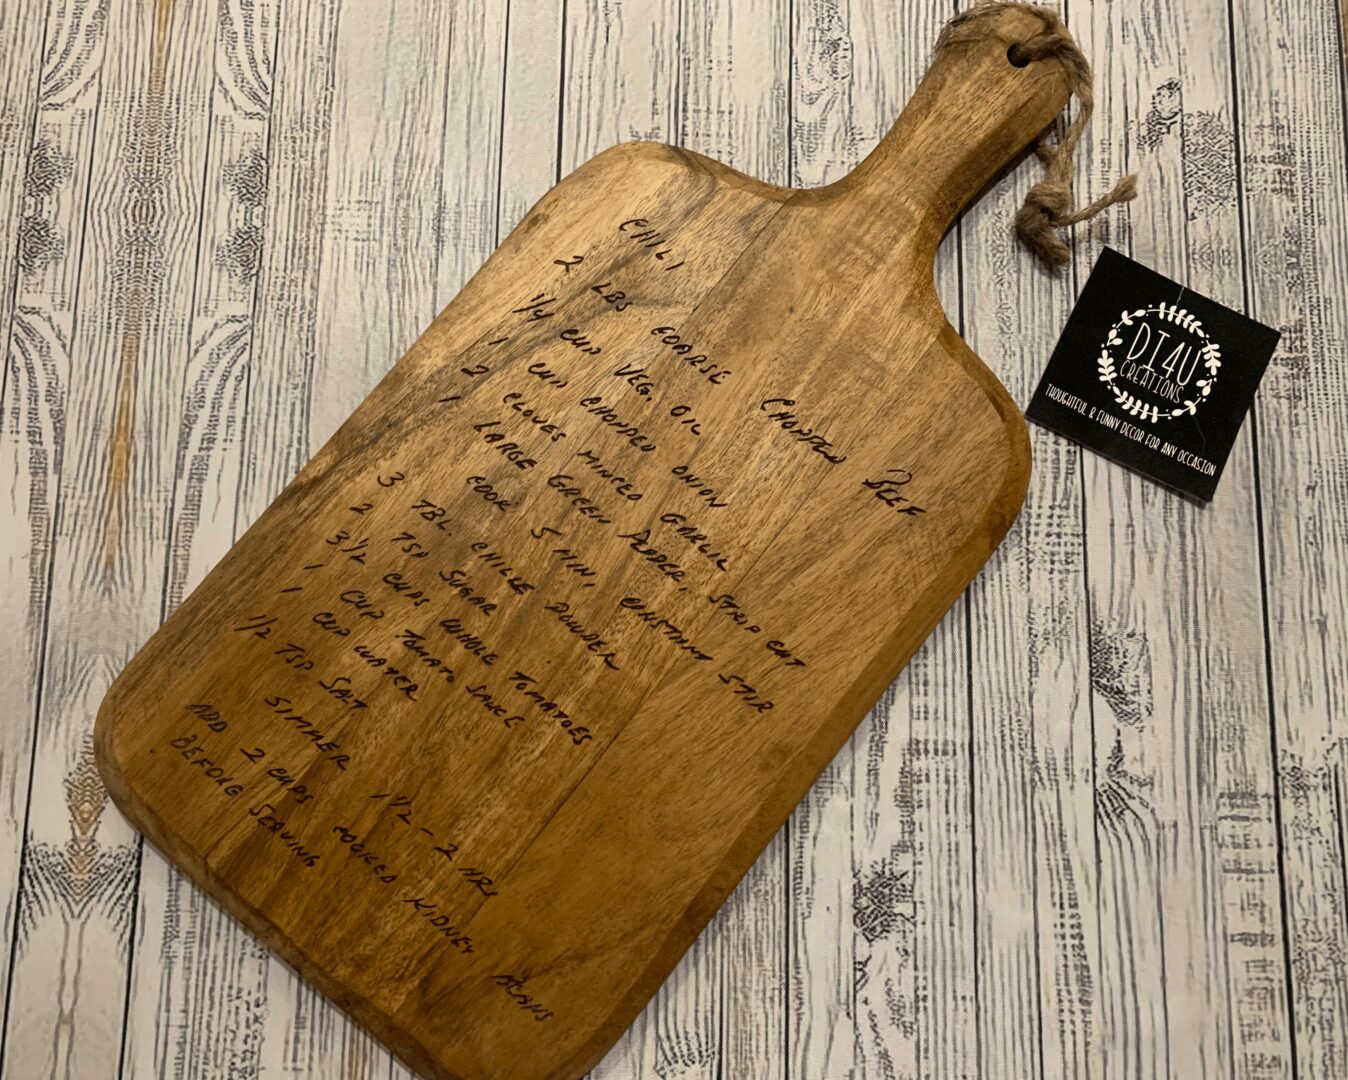 CHILI
2 LBS COARSE CHOPPED BEEF
1/4 CUP VEG. OIL
1 CUP CHOPPED ONION
2 CLOVES MINCED GARLIC
1 LARGE GREEN PEPPER, STRIP CUT
COOK 5 MIN, CONSTANT STIR
3 TBL. CHILIE POWDER
2 TSP SUGAR
3 1/2 CUPS WHOLE TOMATOES
1 CUP TOMATO SAUCE
1 CUP WATER
1/2 TSP SALT
SIMMER 1 1/2 - 2 HRS
ADD 2 CUPS COOKED KIDNEY BEANS
BEFORE SERVING
DI4U
CREATIONS
THOUGHTFUL & FUNNY DECOR FOR ANY OCCASION